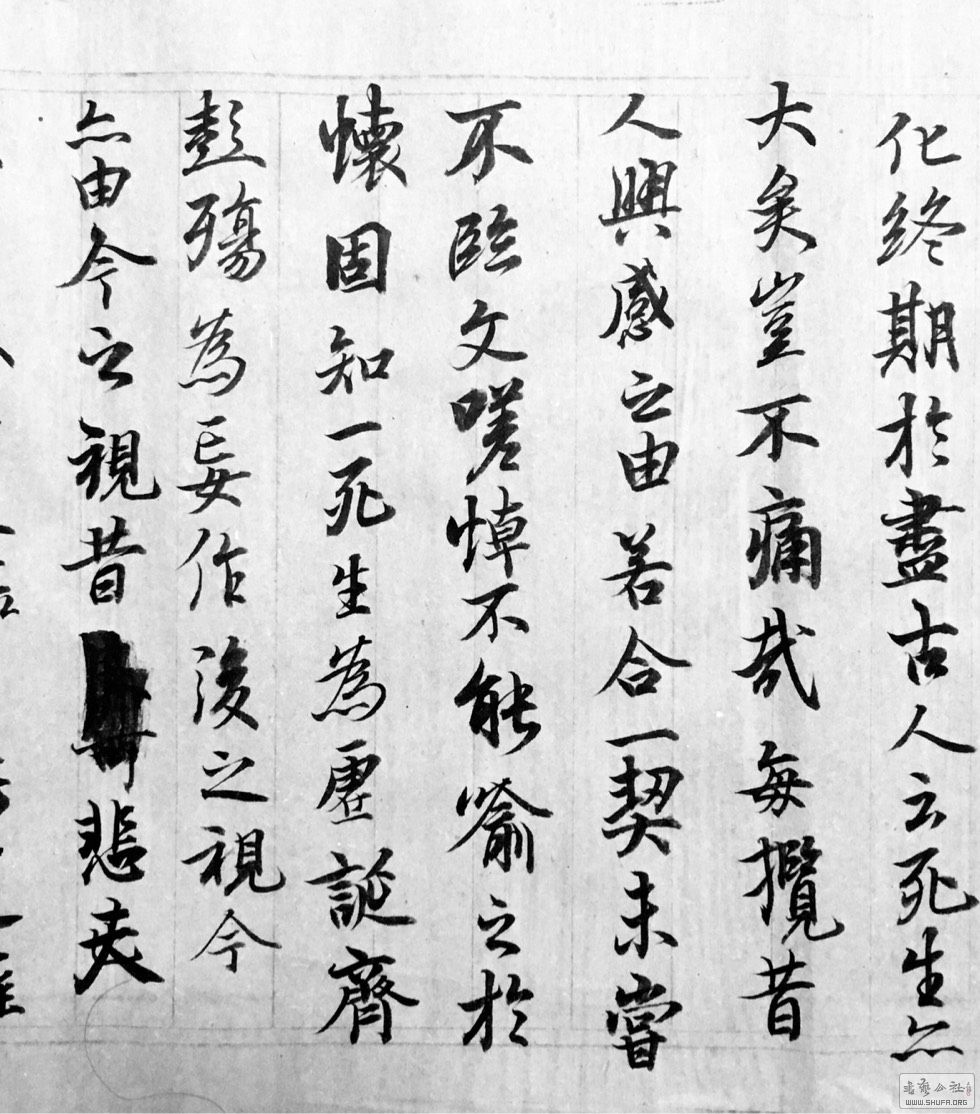 化終期於盡古人云死生亦
大矣豈不痛哉每攬昔
人興感之由若合一契未嘗
不臨文嗟悼不能喻之於
懷固知一死生為虛誕齊
彭殤為妄作後之視今
亦由今之視昔悲夫
書藝公社
WWW.SHUFA.ORG